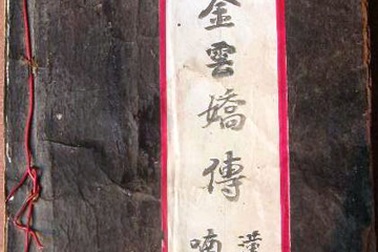 金雲嬌傳
漢
喃